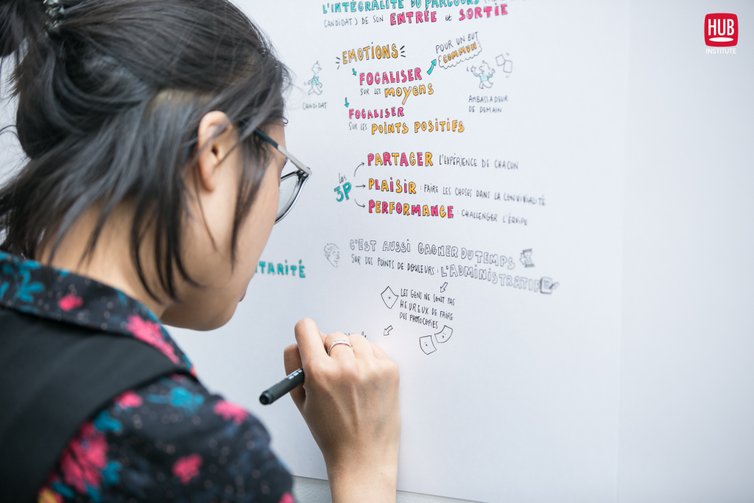 L'INTÉGRALITÉ DU PARCOURS
CANDIDAT) DE SON ENTRÉE et SORTIE
HUB
INSTITUTE
EMOTIONS
POUR UN BUT
COMMUN
FOCALISER
SUR LES MOYENS
CANDIDAT
AMBASSADEUR
DE DEMAIN
FOCALISER
SUR LES POINTS POSITIFS
les
3P
PARTAGER L'EXPÉRIENCE DE CHACUN
PLAISIR : FAIRE LES CHOSES DANS LA CONVIVIALITÉ
PERFORMANCE : CHALLENGER L'ÉQUIPE
C'EST AUSSI GAGNER DU TEMPS
SUR DES POINTS DE DOULEURS : L'ADMINISTRATIF
TARITÉ
LES GENS NE SONT PAS
HEUREUX DE FAIRE
DES PHOTOCOPIES